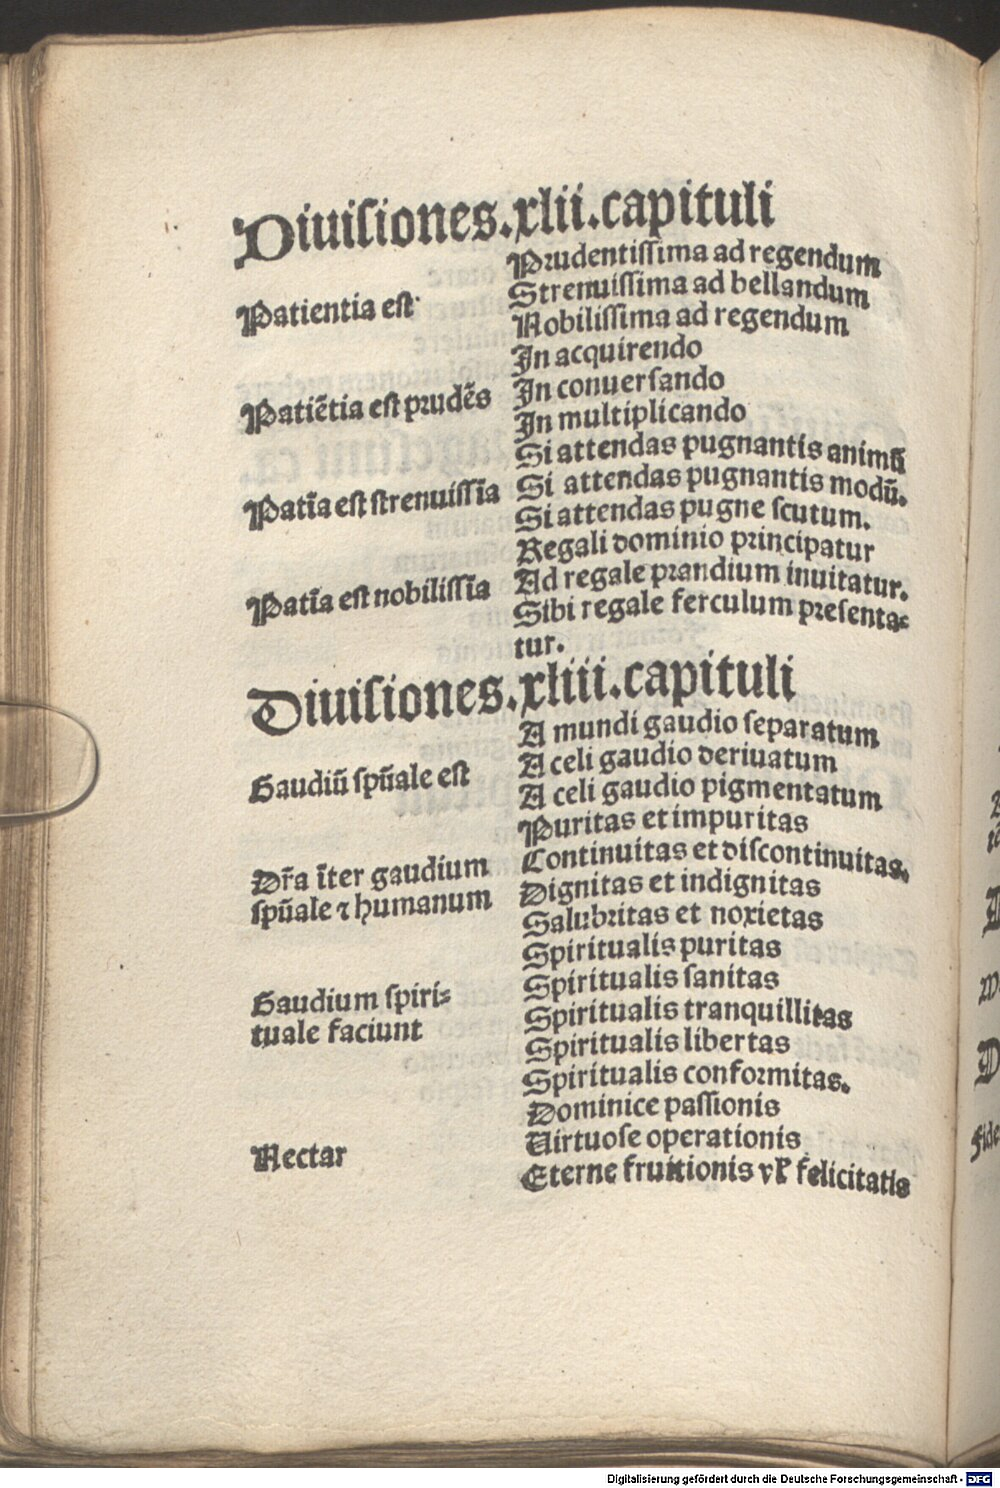 Diuiſiones.xlii.capituli
Patientia eſt
Prudentiſſima ad regendum
Strenuiſſima ad bellandum
Nobiliſſima ad regendum
Patiẽtia eſt prudẽs
In acquirendo
In conuerſando
In multiplicando
Patĩa eſt ſtrenuiſſĩa
Si attendas pugnantis animũ
Si attendas pugnantis modũ.
Si attendas pugne ſcutum.
Patĩa eſt nobiliſſĩa
Regali dominio principatur
Ad regale prandium inuitatur.
Sibi regale ferculum preſenta⸗
tur.
Diuiſiones.xliii.capituli
Gaudiũ ſpũale eſt
A mundi gaudio ſeparatum
A celi gaudio deriuatum
A celi gaudio pigmentatum
Dr̃a ĩter gaudium
ſpũale ⁊ humanum
Puritas et impuritas
Continuitas et diſcontinuitas.
Dignitas et indignitas
Salubritas et noxietas
Gaudium ſpiri⸗
tuale faciunt
Spiritualis puritas
Spiritualis ſanitas
Spiritualis tranquillitas
Spiritualis libertas
Spiritualis conformitas.
Nectar
Dominice paſſionis
Uirtuoſe operationis
Eterne fruitionis vꝉ felicitatis
Digitalisierung gefördert durch die Deutsche Forschungsgemeinschaft - DFG